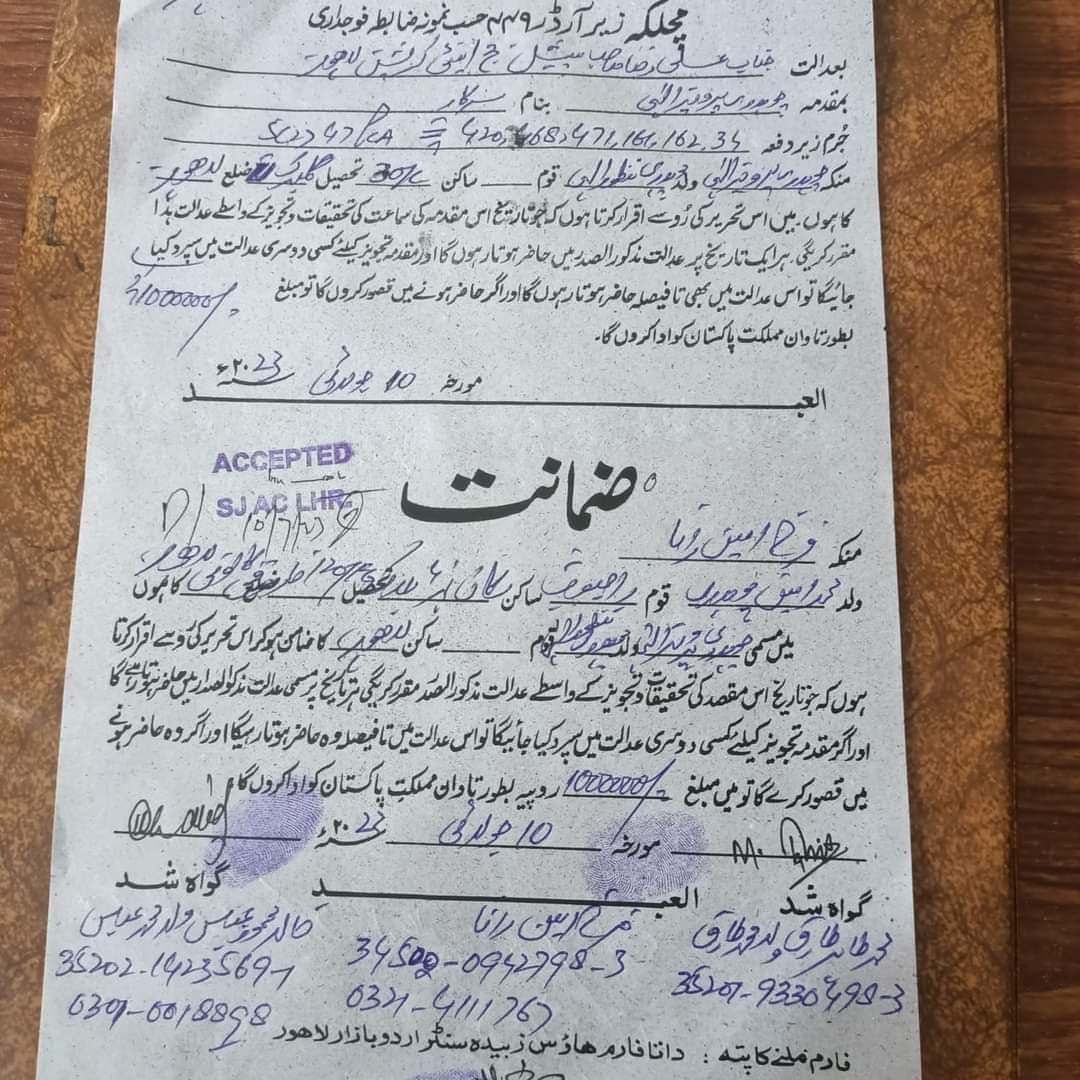 مچلکہ زیر آرڈر ۴۴۹ حسب نمونہ ضابطہ فوجداری
بعدالت جناب علی رضا صاحب سپیشل جج اینٹی کرپشن لاہور
بمقدمہ چوہدری پرویز الہی بنام سرکار
جُرم زیر دفعہ 420, 468, 471, 161, 162, 34 5(2) 47 PCA
منکہ چوہدری پرویز الہی ولد چوہدری منظور الہی قوم ساکن 30/C تحصیل گلبرگ ضلع لاہور
کا ہوں۔ میں اس تحریر کی رُو سے اقرار کرتا ہوں کہ جو تاریخ اس مقدمہ کی سماعت کی تحقیقات و تجویز کے واسطے عدالت ہذا
مقرر کریگی ہر ایک تاریخ پر عدالت مذکور الصدر میں حاضر ہوتا رہوں گا اور مقدمہ تجویز کیلئے کسی دوسری عدالت میں سپرد کیا
جائیگا تو اس عدالت میں بھی تا فیصلہ حاضر ہوتا رہوں گا اور اگر حاضر ہونے میں قصور کروں گا تو مبلغ 1000000/-
بطور تاوان مملکت پاکستان کو ادا کروں گا۔
مورخہ 10 جولائی ۲۰23ء
العبد
ACCEPTED
SJ AC LHR.
10/7/23
ضمانت
منکہ فرخ امین رانا
ولد محمد امین چوہدری قوم راجپوت ساکن تحصیل ضلع لاہور کا ہوں
میں مسمی چوہدری پرویز الہی ولد چوہدری منظور الہی قوم ساکن لاہور کا ضامن ہو کر اس تحریر کی رُو سے اقرار کرتا
ہوں کہ جو تاریخ اس مقصد کی تحقیقات و تجویز کے واسطے عدالت مذکور الصدر مقرر کریگی ہر تاریخ پر مسمی عدالت مذکور الصدر میں حاضر ہوتا رہے گا
اور اگر مقدمہ تجویز کیلئے کسی دوسری عدالت میں سپرد کیا جائیگا تو اس عدالت میں تا فیصلہ وہ حاضر ہوتا رہیگا اور اگر وہ حاضر ہونے
میں قصور کرے گا تو میں مبلغ 1000000/- روپیہ بطور تاوان مملکت پاکستان کو ادا کروں گا
مورخہ 10 جولائی ۲۰23ء
گواہ شد العبد گواہ شد
محمد طاہر طارق ولد محمد طارق فرخ امین رانا خالد محمود عباس ولد محمد عباس
35201-9330498-3 34500-0942798-3 35202-1423569-1
0321-4111767 0301-0018898
فارم ملنے کا پتہ : داتا فارم ہاؤس زبیدہ سنٹر اردو بازار لاہور